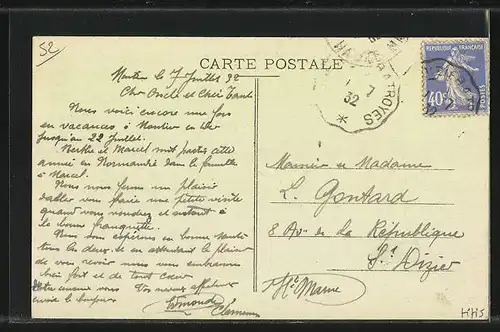 52
CARTE POSTALE
le 7 Juillet 32
Cher Oncle et Chère Tante
Nous voici encore une fois
en vacances à
jusqu'au 22 Juillet.
Berthe et Marcel sont partis cette
année en Normandie dans la famille
à Marcel.
Nous nous ferons un plaisir
d'aller vous faire une petite visite
quand vous voudrez et surtout à
la bonne franquette.
Nous vous espérons en bonne santé
tous les deux, et en attendant le plaisir
de vous revoir nous vous embrassons
bien fort et de tout cœur
Vos neveux
envoie le bonjour
TROYES
7
32
REPUBLIQUE FRANÇAISE
40c
Monsieur et Madame
L. Gontard
8 Av. de la République
St Dizier
Hte Marne